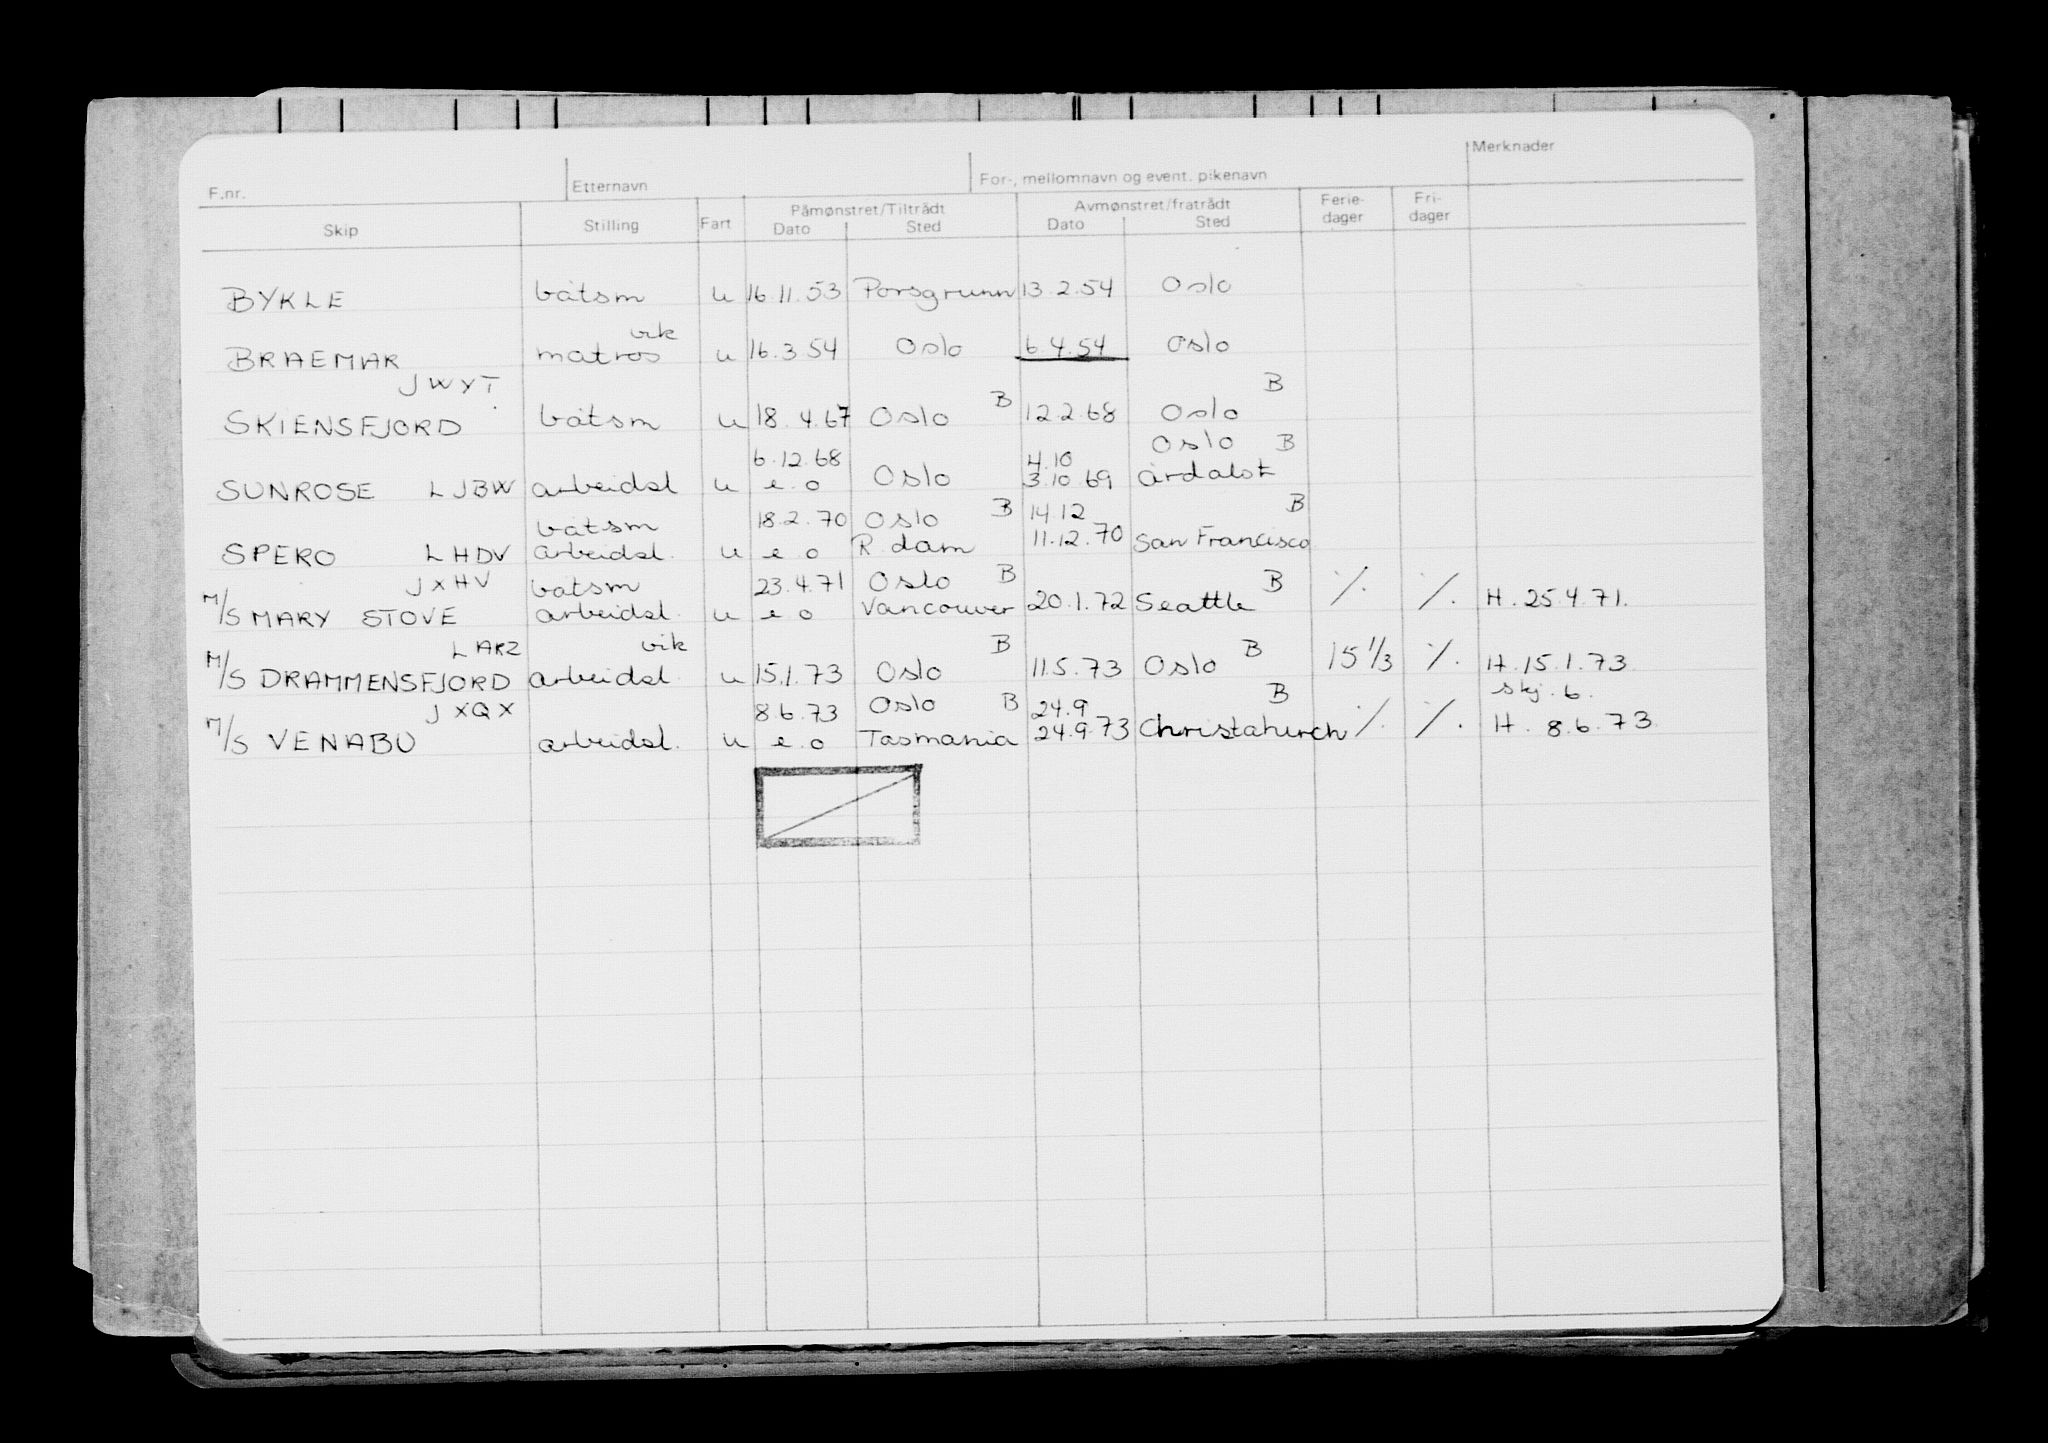 F.nr. Etternavn For-, mellomnavn og event. pikenavn Merknader
Skip Stilling Fart Påmønstret/Tiltrådt Dato Sted Avmønstret/fratrådt Dato Sted Ferie-dager Fri-dager
BYKLE båtsm u 16.11.53 Porsgrunn 13.2.54 Oslo
vik
BRAEMAR matros u 16.3.54 Oslo 6.4.54 Oslo
JWYT B B
SKIENSFJORD båtsm u 18.4.67 Oslo 12.2.68 Oslo
6.12.68 4.10 Oslo B
SUNROSE LJBW arbeidsl u e.o Oslo 3.10.69 årdalst
båtsm 18.2.70 Oslo B 14.12 B
SPERO LHDV arbeidsl. u e o R.dam 11.12.70 San Francisco
JXHV båtsm 23.4.71 Oslo B B
M/S MARY STOVE arbeidsl. u e o Vancouver 20.1.72 Seattle ./. ./. H. 25.4.71.
LARZ vik B B
M/S DRAMMENSFJORD arbeidsl. u 15.1.73 Oslo 11.5.73 Oslo 15 1/3 ./. H. 15.1.73
JXQX 8.6.73 Oslo B 24.9 B skj. 6.
M/S VENABU arbeidsl. u e.o Tasmania 24.9.73 Christchurch ./. ./. H. 8.6.73